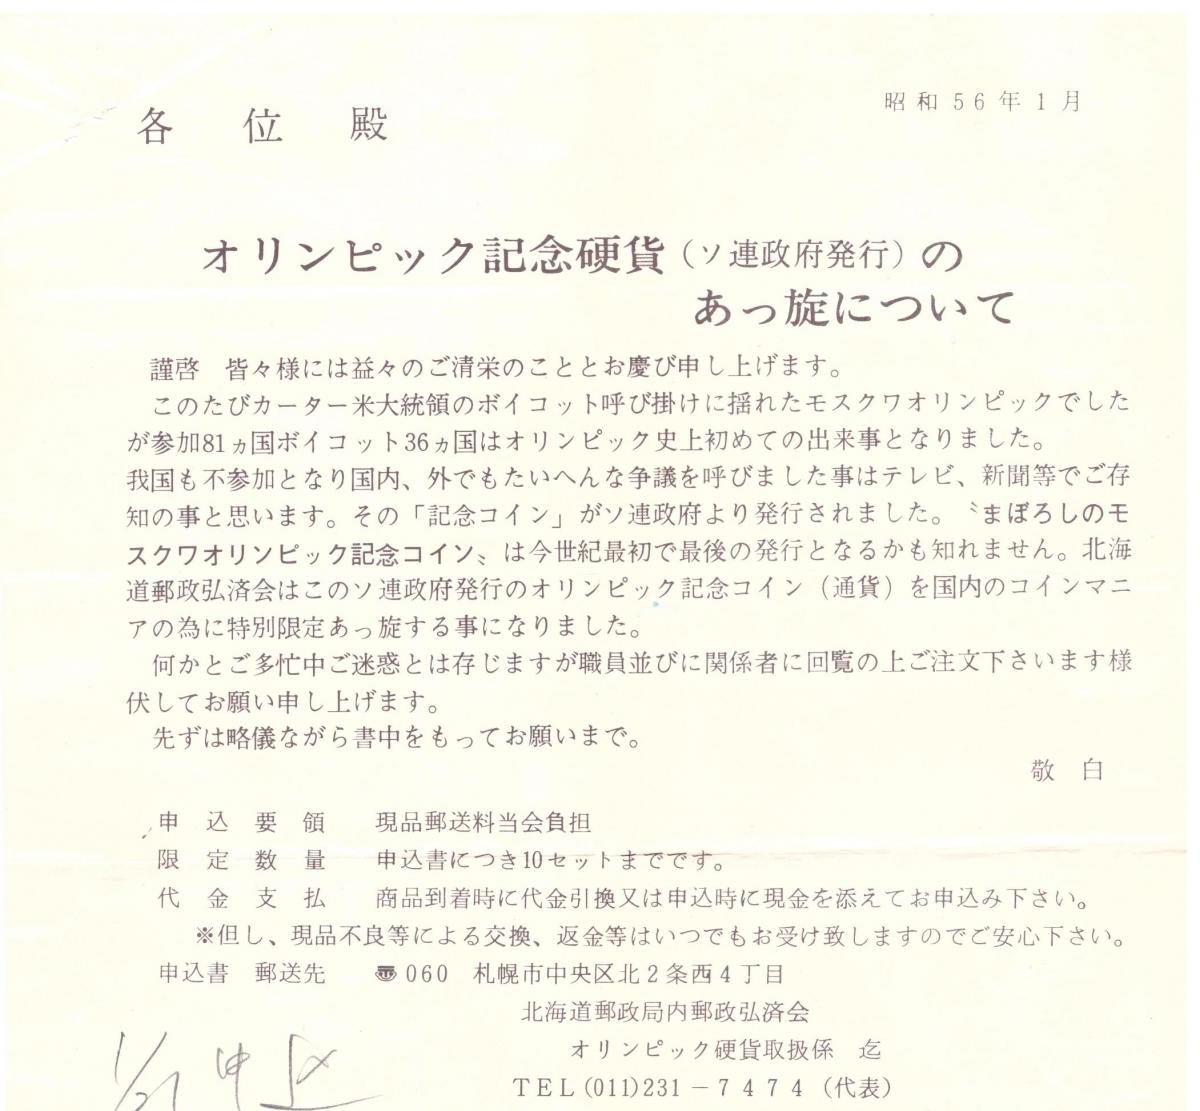 昭和56年1月
各位殿
オリンピック記念硬貨(ソ連政府発行)の
あっ旋について
謹啓 皆々様には益々のご清栄のこととお慶び申し上げます。
このたびカーター米大統領のボイコット呼び掛けに揺れたモスクワオリンピックでした
が参加81ヵ国ボイコット36ヵ国はオリンピック史上初めての出来事となりました。
我国も不参加となり国内、外でもたいへんな争議を呼びました事はテレビ、新聞等でご存
知の事と思います。その「記念コイン」がソ連政府より発行されました。〝まぼろしのモ
スクワオリンピック記念コイン〟は今世紀最初で最後の発行となるかも知れません。北海
道郵政弘済会はこのソ連政府発行のオリンピック記念コイン(通貨)を国内のコインマニ
アの為に特別限定あっ旋する事になりました。
何かとご多忙中ご迷惑とは存じますが職員並びに関係者に回覧の上ご注文下さいます様
伏してお願い申し上げます。
先ずは略儀ながら書中をもってお願いまで。
敬白
申込要領 現品郵送料当会負担
限定数量 申込書につき10セットまでです。
代金支払 商品到着時に代金引換又は申込時に現金を添えてお申込み下さい。
※但し、現品不良等による交換、返金等はいつでもお受け致しますのでご安心下さい。
申込書 郵送先 〠060 札幌市中央区北2条西4丁目
北海道郵政局内郵政弘済会
オリンピック硬貨取扱係 迄
TEL(011)231-7474(代表)
1/27 申込